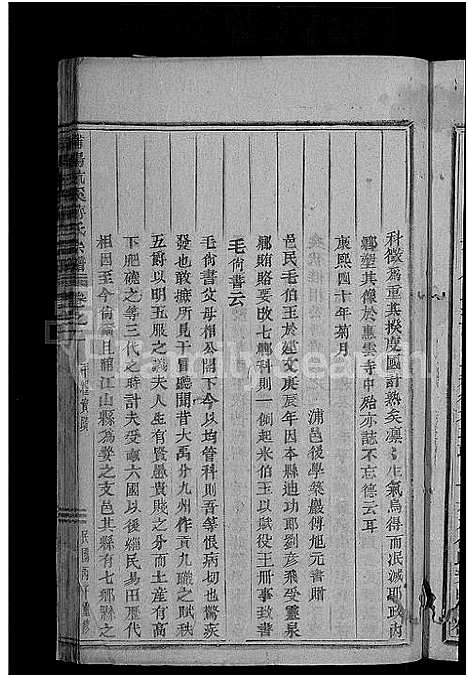 科徵為重其揆度國計熟矣凜凜生氣烏得而泯滅耶故內
鄉塑其像於惠雲寺中殆亦誌不忘德云耳
康熙四十年菊月
浦邑後學築巖傅旭元書贈
邑民毛伯玉於建文庚辰年因本縣迪功耶劉彥飛受靈泉
鄉賄賂要改七鄉科則一例起米伯玉以賦役王冊事致書
毛尚書云
毛尚書父母相公閣下今以均管科則吾等恨病切也驚疾
發也敢摭所見于冒聽聞昔大禹分九州作貢九職之賦秩
五爵以明五服之義夫人生有賢愚貴賤之分而土產有高
下肥磽之等三代之時計夫受廩六國以後經民易田歷代
相因至今尚爾且浦江山縣為婺之支邑其縣有七鄉縣之
浦陽氏宗譜
卷之一
民國丙子重修